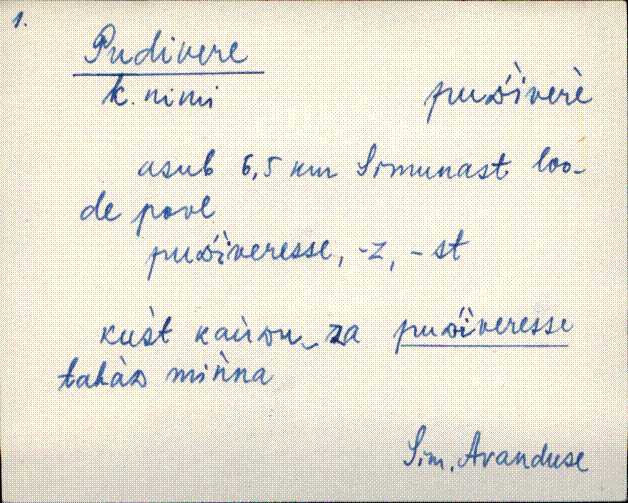 1.
Pudivere
k. nimi
puᴅìverè
asub 6,5 km Simunast loo-
de pool
puᴅìveresse, -z, -st
kust ᴢa puᴅìveresse
minna
Sim. Avanduse